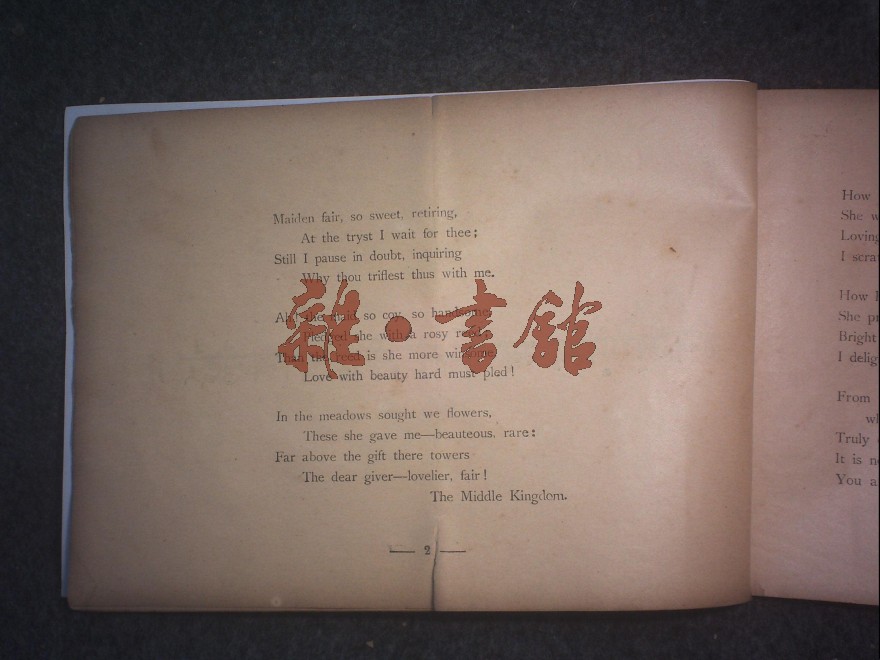 Maiden fair, so sweet, retiring,
At the tryst I wait for thee;
Still I pause in doubt, inquiring
Why thou triflest thus with me.
Ah! the maid so coy, so handsome,
Pledged she with a rosy reed;
Than the reed is she more winsome,
Love with beauty hard must pled!
In the meadows sought we flowers,
These she gave me—beauteous, rare:
Far above the gift there towers
The dear giver—lovelier, fair!
The Middle Kingdom.
— 2 —
雜·書館
How
She w
Loving
I scra
How
She pr
Bright
I delig
From
wh
Truly
It is n
You a